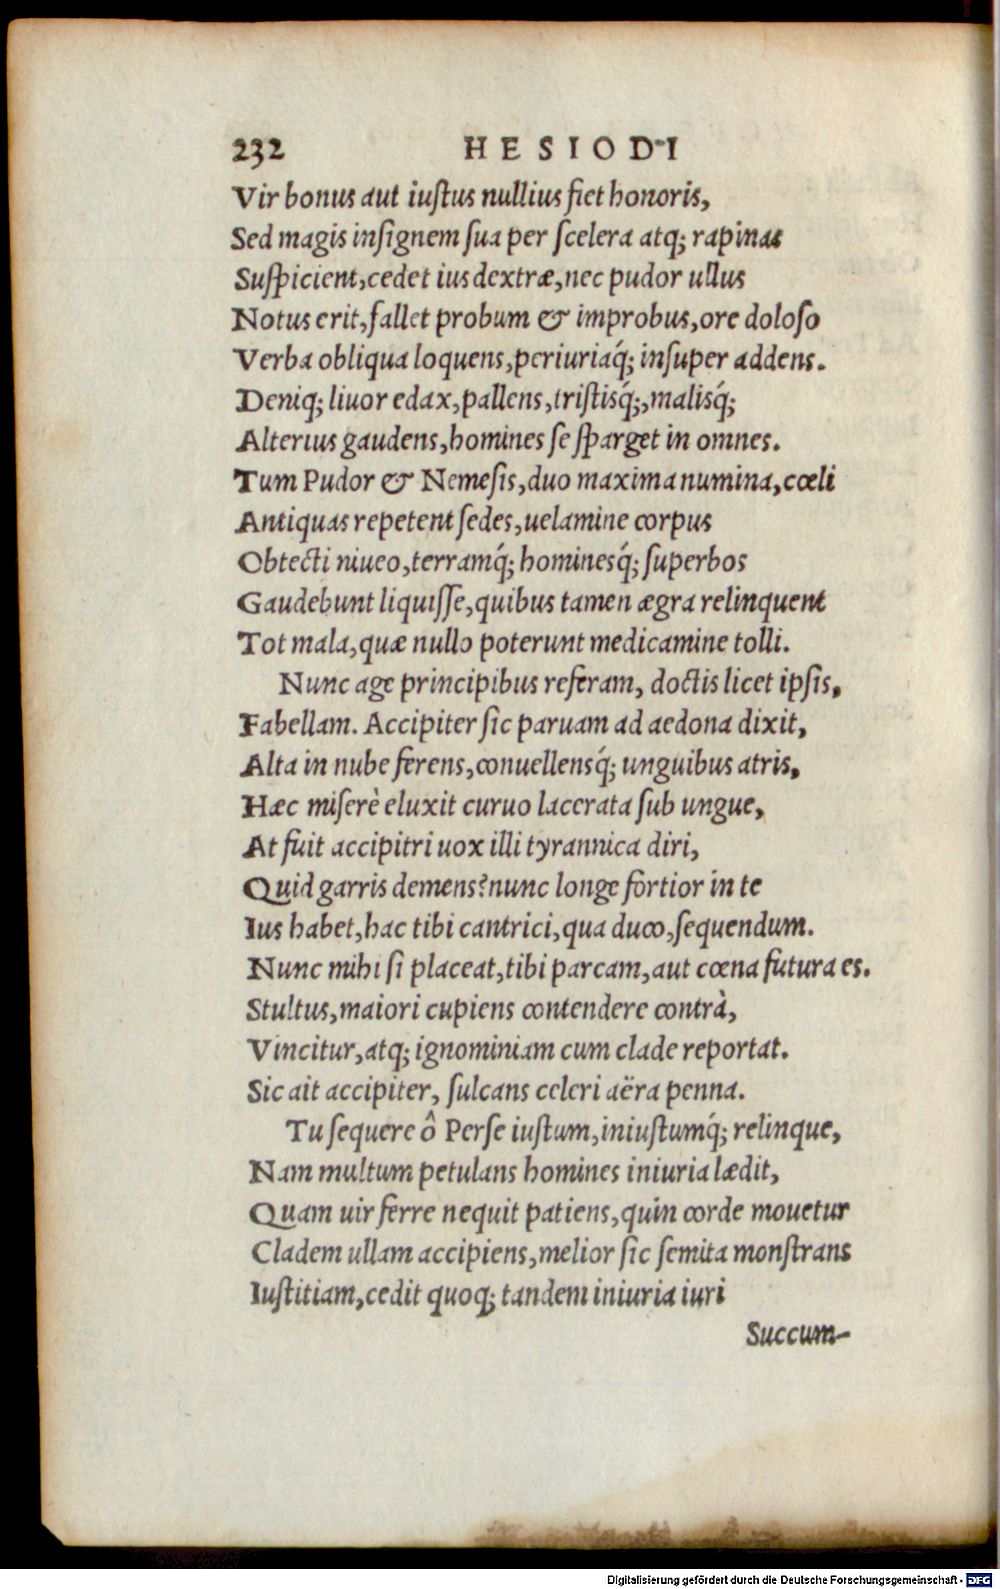 232 HESIODI
Vir bonus aut iuſtus nullius fiet honoris,
Sed magis inſignem ſua per ſcelera atq; rapinas
Suſpicient, cedet ius dextræ, nec pudor ullus
Notus erit, fallet probum & improbus, ore doloſo
Verba obliqua loquens, periuriaq́; inſuper addens.
Deniq; liuor edax, pallens, triſtisq́;, malisq́;
Alterius gaudens, homines ſe ſparget in omnes.
Tum Pudor & Nemeſis, duo maxima numina, cœli
Antiquas repetent ſedes, uelamine corpus
Obtecti niueo, terramq́; hominesq́; ſuperbos
Gaudebunt liquiſſe, quibus tamen ægra relinquent
Tot mala, quæ nullo poterunt medicamine tolli.
Nunc age principibus referam, doctis licet ipſis,
Fabellam. Accipiter ſic paruam ad aedona dixit,
Alta in nube ferens, conuellensq́; unguibus atris,
Hæc miſerè eluxit curuo lacerata ſub ungue,
At fuit accipitri uox illi tyrannica diri,
Quid garris demens? nunc longe fortior in te
Ius habet, hac tibi cantrici, qua duco, ſequendum.
Nunc mihi ſi placeat, tibi parcam, aut cœna futura es.
Stultus, maiori cupiens contendere contrà,
Vincitur, atq; ignominiam cum clade reportat.
Sic ait accipiter, ſulcans celeri aëra penna.
Tu ſequere ô Perſe iuſtum, iniuſtumq́; relinque,
Nam multum petulans homines iniuria lædit,
Quam uir ferre nequit patiens, quin corde mouetur
Cladem ullam accipiens, melior ſic ſemita monſtrans
Iuſtitiam, cedit quoq; tandem iniuria iuri
Succum-
Digitalisierung gefördert durch die Deutsche Forschungsgemeinschaft - DFG